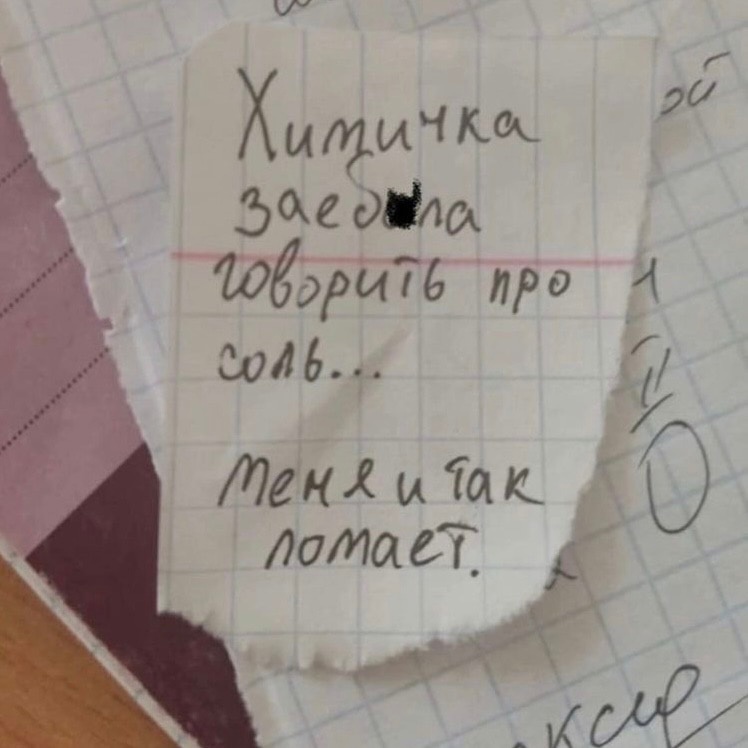 Химичка
заебла
говорить про
соль...
Меня и так
ломает.